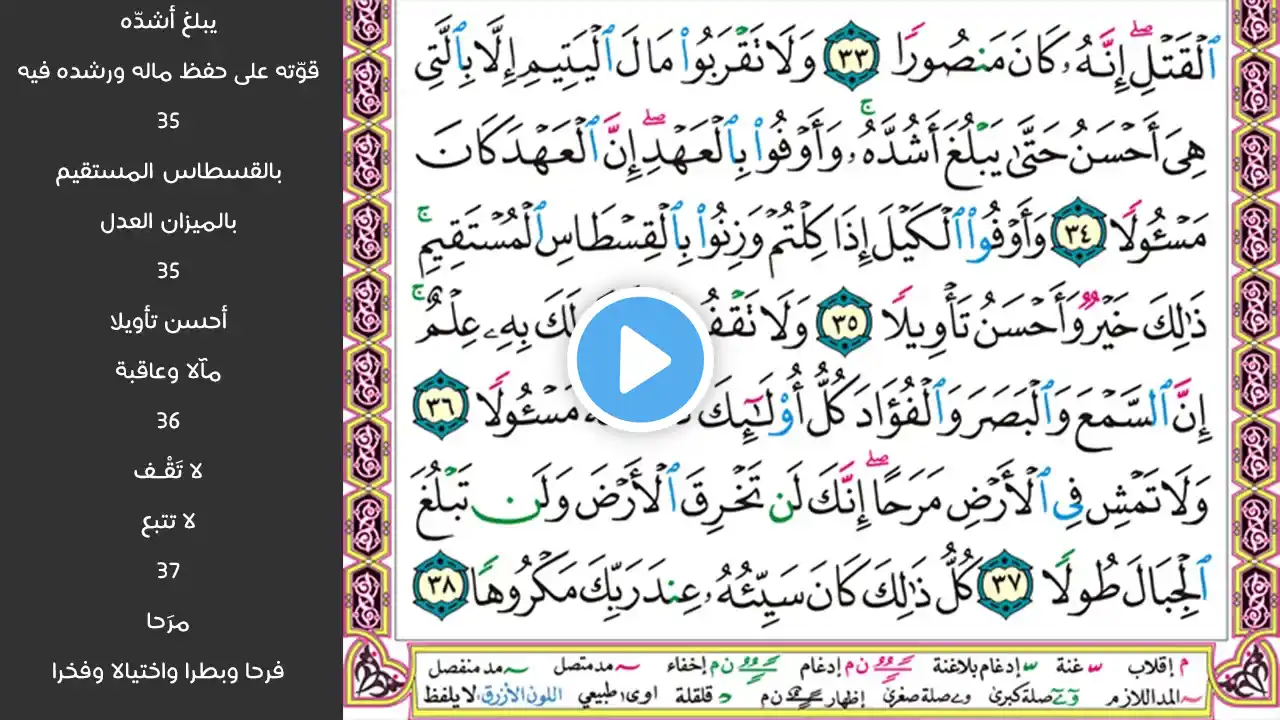 ٱلۡقَتۡلِۖ إِنَّهُۥ كَانَ مَنصُورٗا ٣٣ وَلَا تَقۡرَبُواْ مَالَ ٱلۡيَتِيمِ إِلَّا بِٱلَّتِي
هِيَ أَحۡسَنُ حَتَّىٰ يَبۡلُغَ أَشُدَّهُۥۚ وَأَوۡفُواْ بِٱلۡعَهۡدِۖ إِنَّ ٱلۡعَهۡدَ كَانَ
مَسۡـُٔولٗا ٣٤ وَأَوۡفُواْ ٱلۡكَيۡلَ إِذَا كِلۡتُمۡ وَزِنُواْ بِٱلۡقِسۡطَاسِ ٱلۡمُسۡتَقِيمِۚ
ذَٰلِكَ خَيۡرٞ وَأَحۡسَنُ تَأۡوِيلٗا ٣٥ وَلَا تَقۡفُ لَكَ بِهِۦ عِلۡمٌۚ
إِنَّ ٱلسَّمۡعَ وَٱلۡبَصَرَ وَٱلۡفُؤَادَ كُلُّ أُوْلَـٰٓئِكَ مَسۡـُٔولٗا ٣٦
وَلَا تَمۡشِ فِي ٱلۡأَرۡضِ مَرَحًاۖ إِنَّكَ لَن تَخۡرِقَ ٱلۡأَرۡضَ وَلَن تَبۡلُغَ
ٱلۡجِبَالَ طُولٗا ٣٧ كُلُّ ذَٰلِكَ كَانَ سَيِّئُهُۥ عِندَ رَبِّكَ مَكۡرُوهٗا ٣٨
م إقلاب س غنة س إدغام بلاغنة ن م إدغام ن م إخفاء مد متصل مد منفصل
المد اللازم صلة كبرى صلة صغرى إظهار ن م د قلقلة اوى طبيعي اللون الأزرق لا يلفظ
يبلغ أشدّه
قوّته على حفظ ماله ورشده فيه
35
بالقسطاس المستقيم
بالميزان العدل
35
أحسن تأويلا
مآلا وعاقبة
36
لا تَقْـف
لا تتبع
37
مرَحا
فرحا وبطرا واختيالا وفخرا